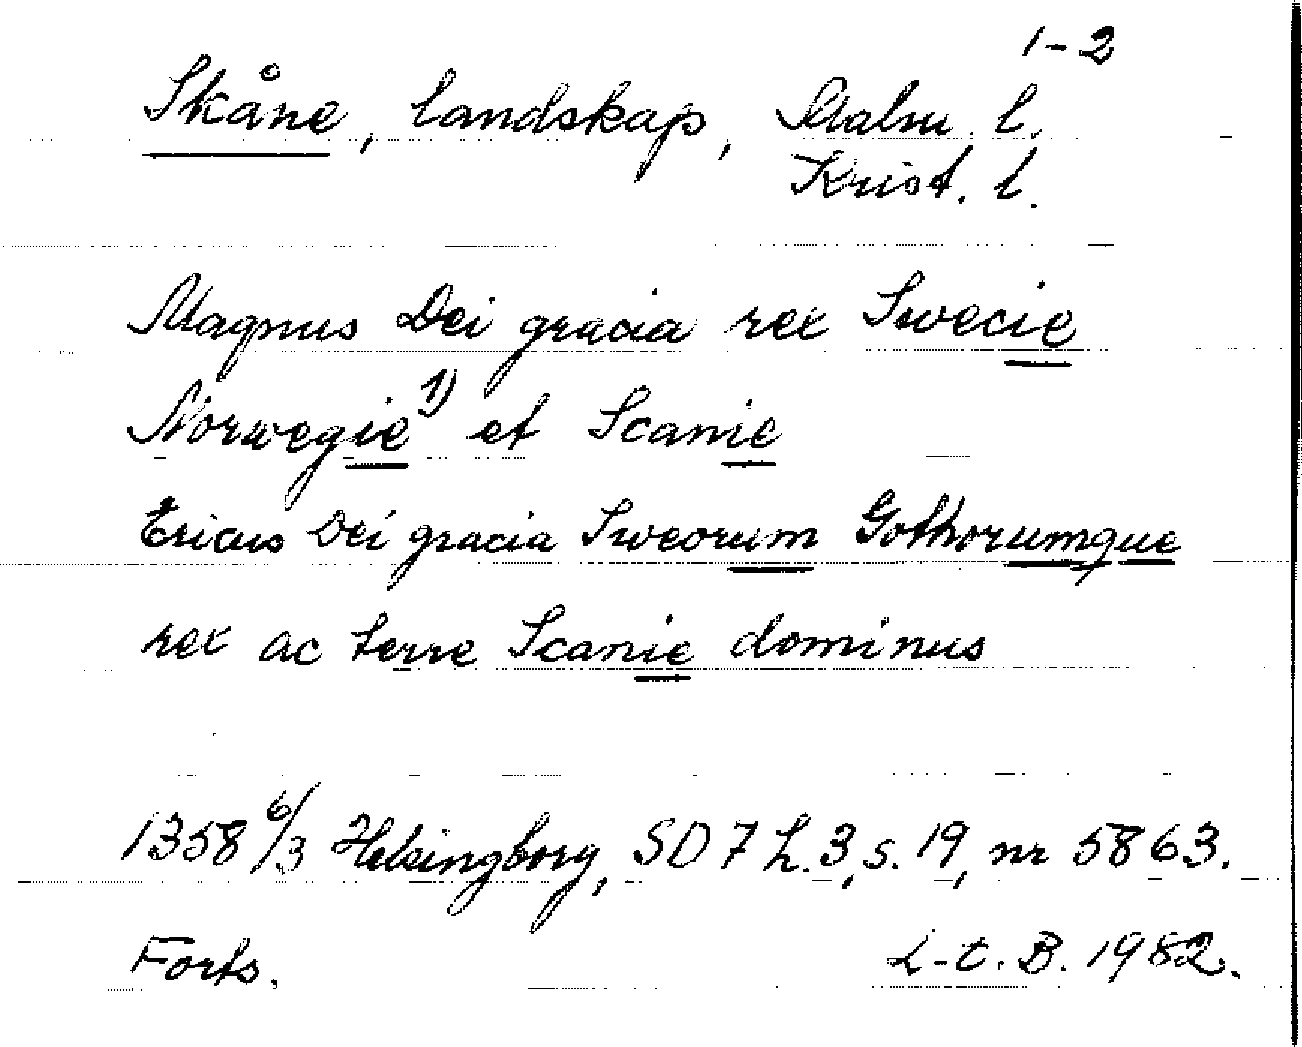 1-2
Skåne, landskap, Malm. l.
Krist. l.
Magnus Dei gracia rex Swecie
Norwegie 1) et Scanie
Ericus Dei gracia Sweorum Gothorumque
rex ac terre Scanie dominus
1358 6/3 Helsingborg, SD 7 h. 3, s. 19, nr 5863.
Forts. L-t. B. 1982.